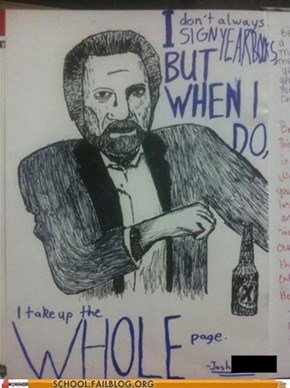 I don't always
SIGN YEARBOOKS,
BUT
WHEN I
DO,
I take up the
WHOLE page.
-Josh
SCHOOL.FAILBLOG.ORG